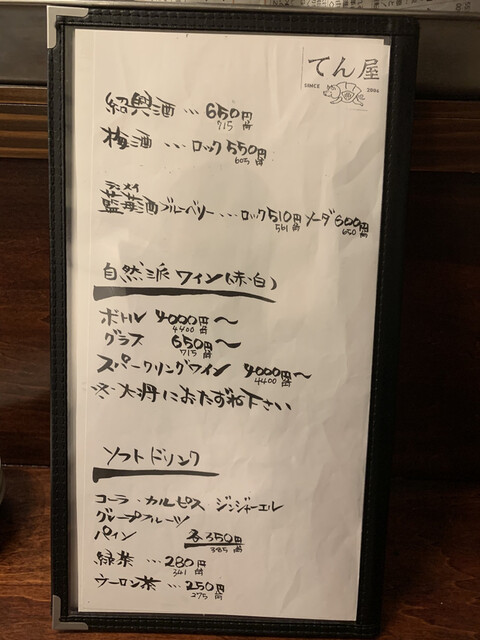 てん屋
SINCE 2004
紹興酒 … 650円
715円
梅酒 … ロック 550円
605円
藍苺酒 ブルーベリー … ロック 510円 ソーダ 600円
561円 660円
自然派ワイン(赤・白)
ボトル 4000円〜
4400円
グラス 650円〜
715円
スパークリングワイン 4000円〜
4400円
※大将におたずね下さい
ソフトドリンク
コーラ・カルピス ジンジャーエル
グレープフルーツ
パイン 各350円
385円
緑茶 … 280円
341円
ウーロン茶 … 250円
275円